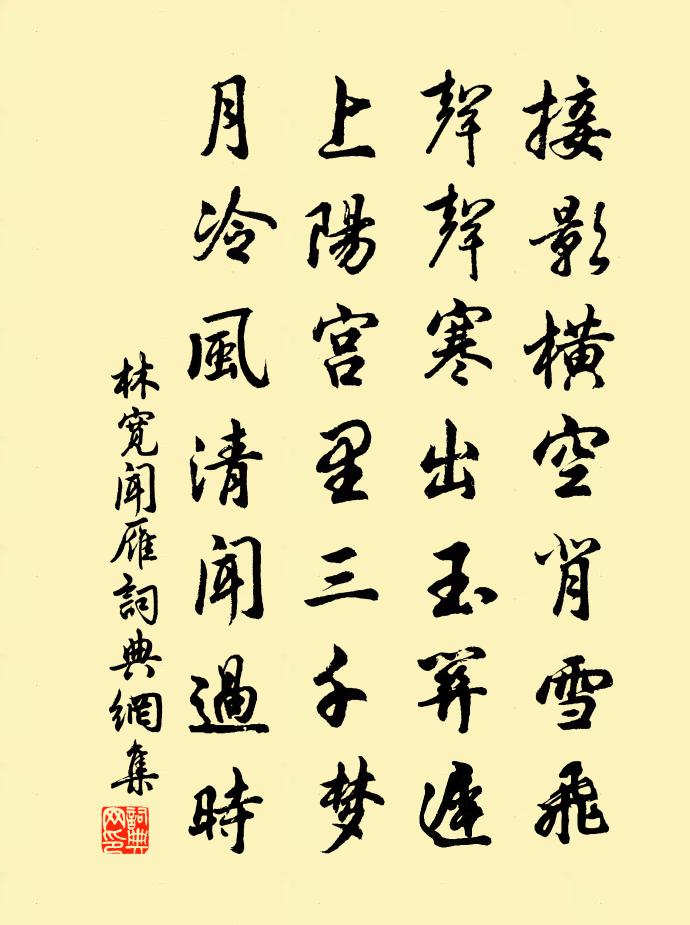 接影横空背雪飛
聲聲寒出玉關遲
上陽宫里三千梦
月冷風清聞過時
林寬聞雁詞典網集
詞典网印